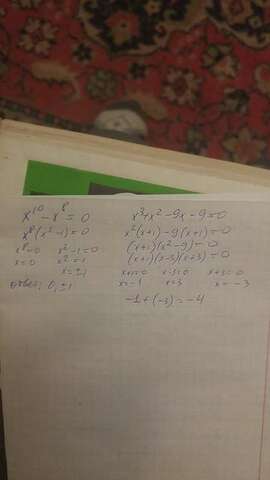 x¹⁰ - x⁸ = 0
x⁸(x²-1)=0
x⁸=0 x²-1=0
x=0 x²=1
x=±1
ответ: 0, ±1
x³+x²-9x-9=0
x²(x+1)-9(x+1)=0
(x+1)(x²-9)=0
(x+1)(x-3)(x+3)=0
x+1=0 x-3=0 x+3=0
x=-1 x=3 x=-3
-1+(-3)=-4